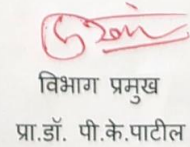 विभाग प्रमुख
प्रा.डॉ. पी.के.पाटील